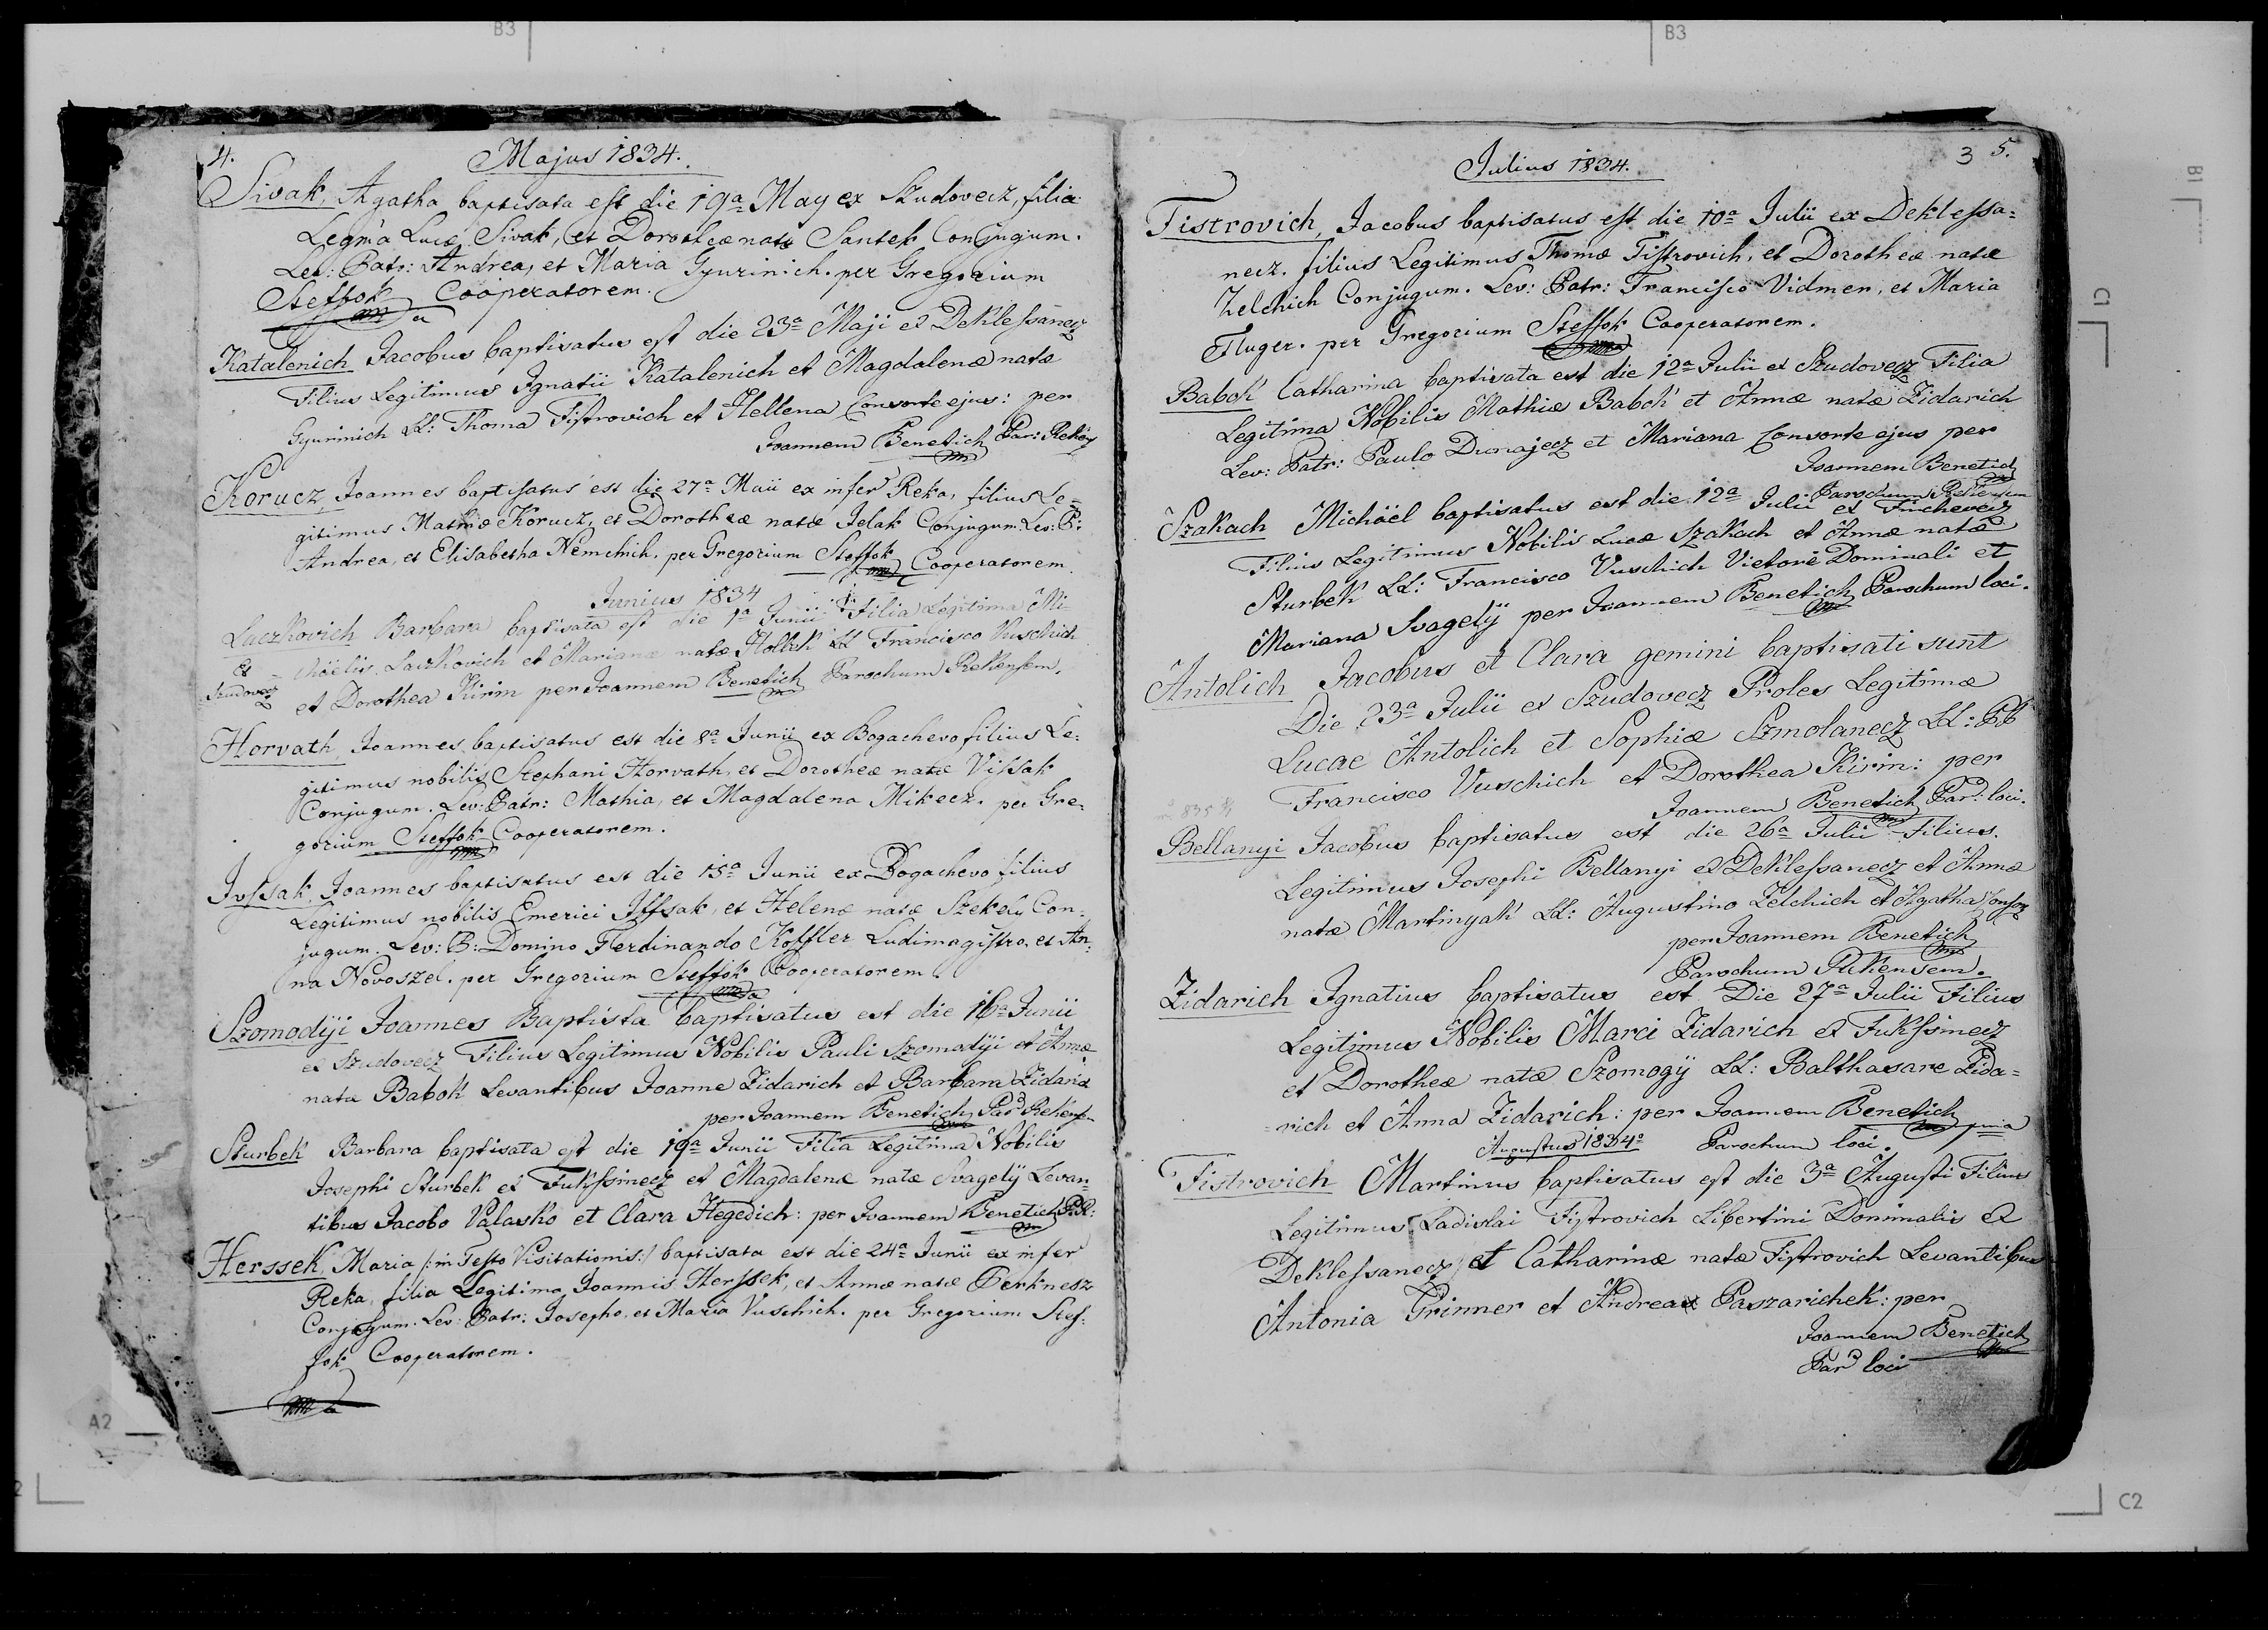 B3
B3
4.
Majus 1834.
Sivak, Agatha baptisata est die 19a May ex Szudovecz, filia
Legma Lucæ Sivak, et Dorotheæ natæ Santek Conjugum.
Lev: Patr: Andrea, et Maria Gyurinich. per Gregorium
Steffok Cooperatorem.
Katalenich Jacobus baptisatus est die 23a Maji ex Deklessanecz
Filius Legitimus Ignatii Katalenich et Magdalenæ natæ
Gyurinich LL: Thoma Fistrovich et Hellena Consorte ejus: per
Joannem Benetich Par:
Korucz, Joannes baptisatus est die 27a Maii ex infer Reka, filius Le=
gitimus Korucz, et Dorotheæ natæ Jelak Conjugum. Lev: P:
Andrea, et Elisabetha Nemchich. per Gregorium Steffok Cooperatorem
Junius 1834
Laczkovich Barbara baptisata est die 1a Junii Filia Legitima Mi-
ex Szudovecz
chäelis Laczkovich et Marianæ natæ LL Francisco Vuschich
et Dorothea Kirin per Joannem Benetich Parochum Rekensem.
Horvath, Joannes baptisatus est die 8a Junii ex Bogachevo filius Le=
gitimus nobilis Stephani Horvath, et Dorotheæ natæ Vissak
Conjugum. Lev: Patr: Mathia, et Magdalena Mikecz. per Gre=
gorium Steffok Cooperatorem.
Ivssak, Joannes baptisatus est die 15a Junii ex Bogachevo filius
Legitimus nobilis Emerici Iffsak, et Helenæ natæ Szekely Con=
jugum. Lev: P: Domino Ferdinando Koffler Ludimagistro, et An=
na Novoszel. per Gregorium Steffok Cooperatorem.
Szomodÿi Joannes Baptista baptisatus est die 16a Junii
ex Szudovecz Filius Legitimus Nobilis Pauli Szomodÿi et Annæ
natæ Babok Levantibus Joanne Zidarich et Barbara Zidarich
per Joannem Benetich Par Rekensem
Sturbek Barbara baptisata est die 19a Junii Filia Legitima Nobilis
Josephi Sturbek ex Fukssinecz et Magdalenæ natæ Svagelÿ Levan=
tibus Jacobo Valasko et Clara Hegedich: per Joannem Benetich P.R:
Herssek, Maria /:in Festo Visitationis:/ baptisata est die 24a Junii ex infer
Reka, filia Legitima Joannis Herssek, et Annæ natæ Perknesz
Conjugum. Lev: Patr: Josepho, et Maria Vuschich. per Gregorium Stef=
fok Cooperatorem.
Julius 1834.
3 5.
Fistrovich, Jacobus baptisatus est die 10a Julii ex Deklessa=
necz. filius Legitimus Thomæ Fistrovich, et Dorotheæ natæ
Zelchich Conjugum. Lev: Patr: Francisco Vidmer, et Maria
Fluger. per Gregorium Steffok Cooperatorem.
Babok Catharina baptisata est die 12a Julii ex Szudovecz Filia
Legitima Nobilis Mathiæ Babok et Annæ natæ Zidarich
Lev: Patr: Paulo Dunajecz et Mariana Consorte ejus per
Joannem Benetich
Parochum Rekensem
Szakach Michäel baptisatus est die 12a Julii ex Finchevecz
Filius Legitimus Nobilis Lucæ Szakach et Annæ natæ
Sturbek LL: Francisco Vuschich Vietore Dominali et
Mariana Svagelÿ per Joannem Benetich Parochum loci.
Antolich Jacobus et Clara gemini baptisati sunt
Die 23a Julii ex Szudovecz Proles Legitimæ
Lucae Antolich et Sophiæ Szmolanecz LL: PP
Francisco Vuschich et Dorothea Kirin: per
Joannem Benetich Par: loci.
Bellanyi Jacobus baptisatus est die 26a Julii Filius
Legitimus Josephi Bellanyi ex Deklessanecz et Annæ
natæ Martinyak LL: Augustino Zelchich et Agatha Consor
per Joannem Benetich
Parochum Rekensem.
Zidarich Ignatius baptisatus est Die 27a Julii Filius
Legitimus Nobilis Marci Zidarich ex Fukssinecz
et Dorotheæ natæ Szomogÿ LL: Balthasare Zida=
=rich et Anna Zidarich: per Joannem Benetich
Augustus 1834o Parochum loci.
Fistrovich Martinus baptisatus est die 3a Augusti Filius
Legitimus Ladislai Fistrovich Libertini Dominalis ex
Deklessanecz et Catharinæ natæ Fistrovich Levantibus
Antonia Grinner et Andrea Paszarichek: per
Joannem Benetich
Par loci
B1
C1
A2
2
C2